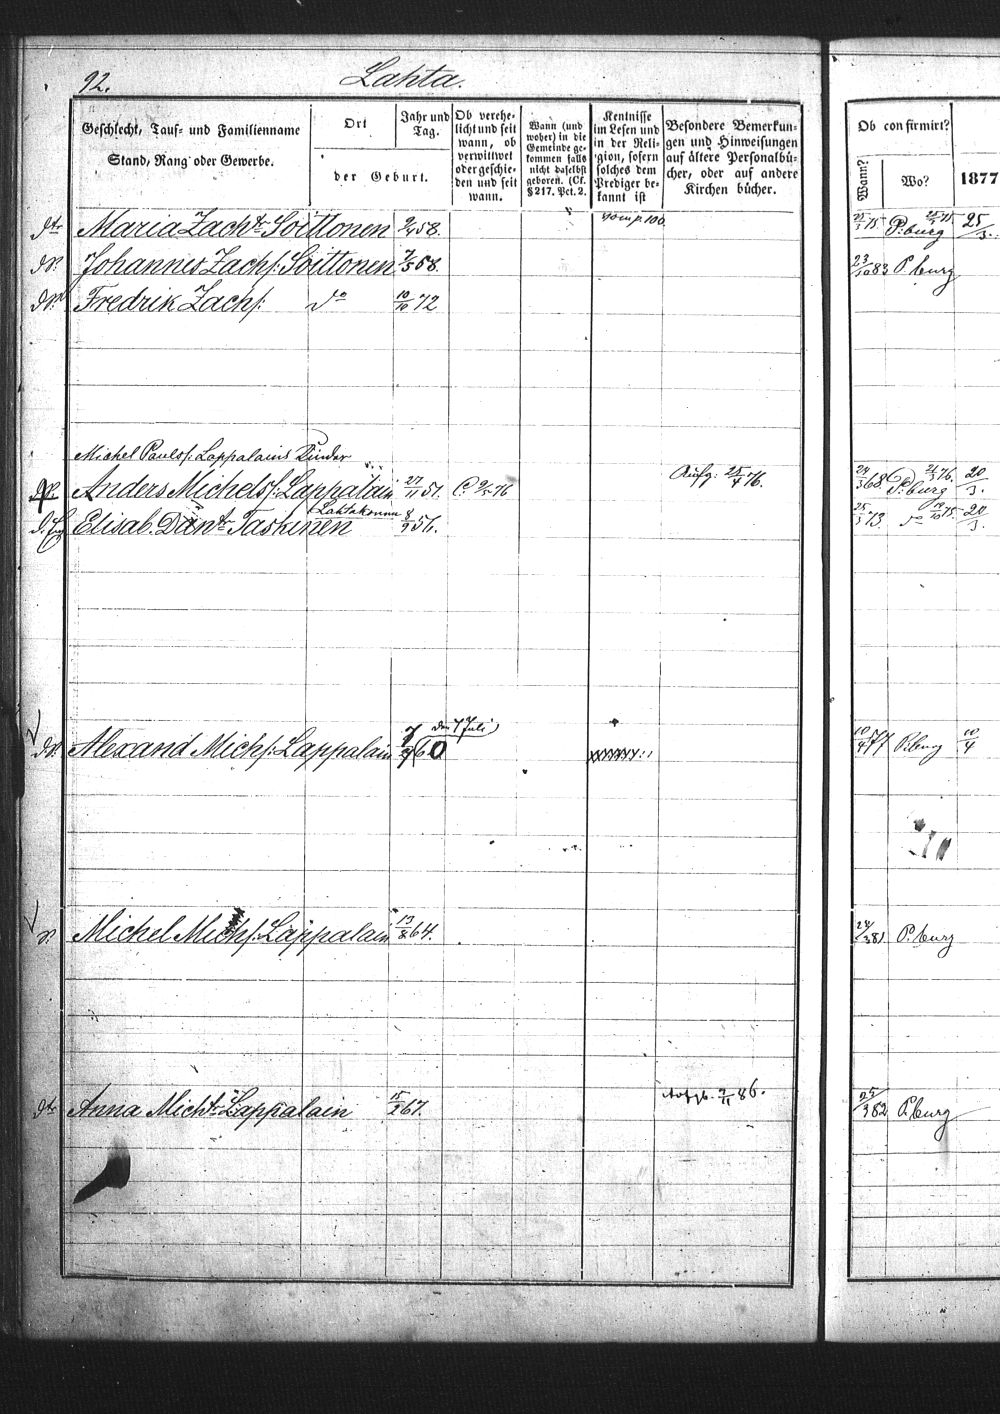 92. Lahta.
Geschlecht, Tauf- und Familienname
Stand, Rang oder Gewerbe.
Ort
der Geburt.
Jahr und
Tag.
Ob verehe-
licht und seit
wann, ob
verwittwet
oder geschie-
den und seit
wann.
Wann (und
woher) in die
Gemeinde ge-
kommen falls
nicht daselbst
geboren. (Cf.
§ 217. Pct. 2.
Kentnisse
im Lesen und
in der Reli-
gion, sofern
solches dem
Prediger be-
kannt ist
Besondere Bemerkun-
gen und Hinweisungen
auf ältere Personalbü-
cher, oder auf andere
Kirchen bücher.
Ob confirmirt?
Wann?
Wo?
1877
dtr Maria Zachtr Soittonen 2/4 58. P:burg 25/3.
Johannes Zachs: Soittonen 7/5 58. 23/10 83 P.burg
Fredrik Zachs: do 10/10 72
Michel Paulss: Lappalains Kinder
Anders Michelss: Lappalain 27/11 51. C. 2/5 76 Aufg: 25/4 76. 24/3 68. P:burg 21/3 76. 20/3.
Lahtakonna
Elisab. Dantr Taskinen 8/9 56. 25/3 73. do 19/10 75. 20/3.
den 7 Juli
Alexand Michs: Lappalain 60 10/4 77 P.burg 10/4
Michel Michs: Lappalain 13/8 64. 24/3 81. P.burg
dtr Anna Michtr Lappalain 15/2 67. 2/11 86. 25/3 82 P.burg